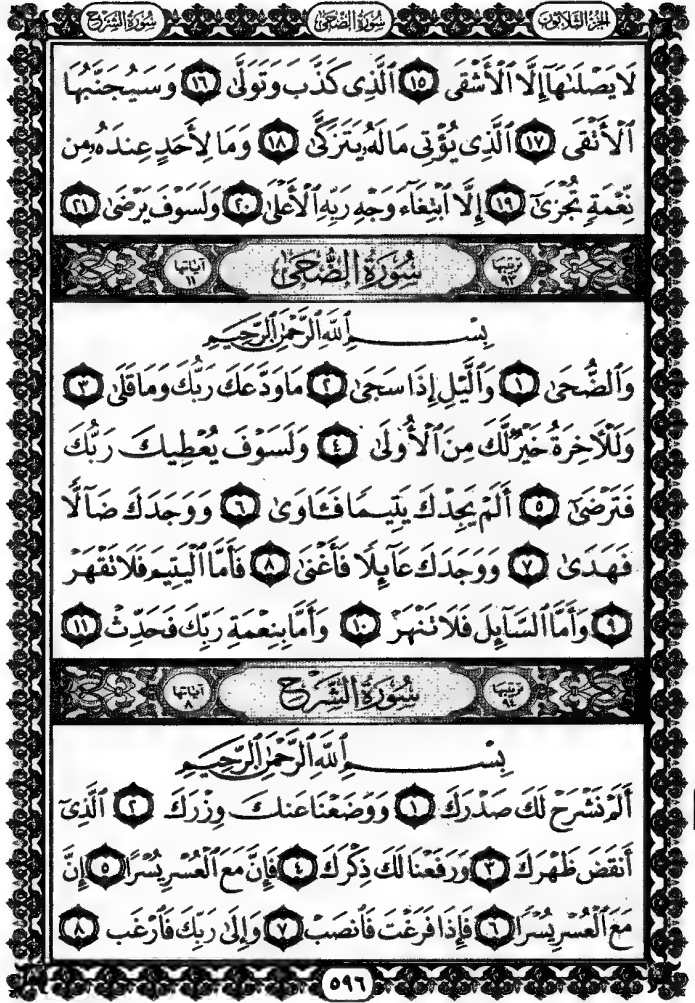 سُورَةُ الشَّرْحِ
سُورَةُ الضُّحَى
الجُزْءُ الثَّلَاثُونَ
لَا يَصْلَىٰهَآ إِلَّا ٱلْأَشْقَى ١٥ ٱلَّذِى كَذَّبَ وَتَوَلَّىٰ ١٦ وَسَيُجَنَّبُهَا
ٱلْأَتْقَى ١٧ ٱلَّذِى يُؤْتِى مَالَهُۥ يَتَزَكَّىٰ ١٨ وَمَا لِأَحَدٍ عِندَهُۥ مِن
نِّعْمَةٍ تُجْزَىٰٓ ١٩ إِلَّا ٱبْتِغَآءَ وَجْهِ رَبِّهِ ٱلْأَعْلَىٰ ٢٠ وَلَسَوْفَ يَرْضَىٰ ٢١
ترتيبها ٩٣
سُورَةُ الضُّحَى
آياتها ١١
بِسْمِ ٱللَّهِ ٱلرَّحْمَٰنِ ٱلرَّحِيمِ
وَٱلضُّحَىٰ ١ وَٱلَّيْلِ إِذَا سَجَىٰ ٢ مَا وَدَّعَكَ رَبُّكَ وَمَا قَلَىٰ ٣
وَلَلْءَاخِرَةُ خَيْرٌ لَّكَ مِنَ ٱلْأُولَىٰ ٤ وَلَسَوْفَ يُعْطِيكَ رَبُّكَ
فَتَرْضَىٰٓ ٥ أَلَمْ يَجِدْكَ يَتِيمًا فَـَٔاوَىٰ ٦ وَوَجَدَكَ ضَآلًّا
فَهَدَىٰ ٧ وَوَجَدَكَ عَآئِلًا فَأَغْنَىٰ ٨ فَأَمَّا ٱلْيَتِيمَ فَلَا تَقْهَرْ
٩ وَأَمَّا ٱلسَّآئِلَ فَلَا تَنْهَرْ ١٠ وَأَمَّا بِنِعْمَةِ رَبِّكَ فَحَدِّثْ ١١
ترتيبها ٩٤
سُورَةُ الشَّرْحِ
آياتها ٨
بِسْمِ ٱللَّهِ ٱلرَّحْمَٰنِ ٱلرَّحِيمِ
أَلَمْ نَشْرَحْ لَكَ صَدْرَكَ ١ وَوَضَعْنَا عَنكَ وِزْرَكَ ٢ ٱلَّذِىٓ
أَنقَضَ ظَهْرَكَ ٣ وَرَفَعْنَا لَكَ ذِكْرَكَ ٤ فَإِنَّ مَعَ ٱلْعُسْرِ يُسْرًا ٥ إِنَّ
مَعَ ٱلْعُسْرِ يُسْرًا ٦ فَإِذَا فَرَغْتَ فَٱنصَبْ ٧ وَإِلَىٰ رَبِّكَ فَٱرْغَب ٨
٥٩٦